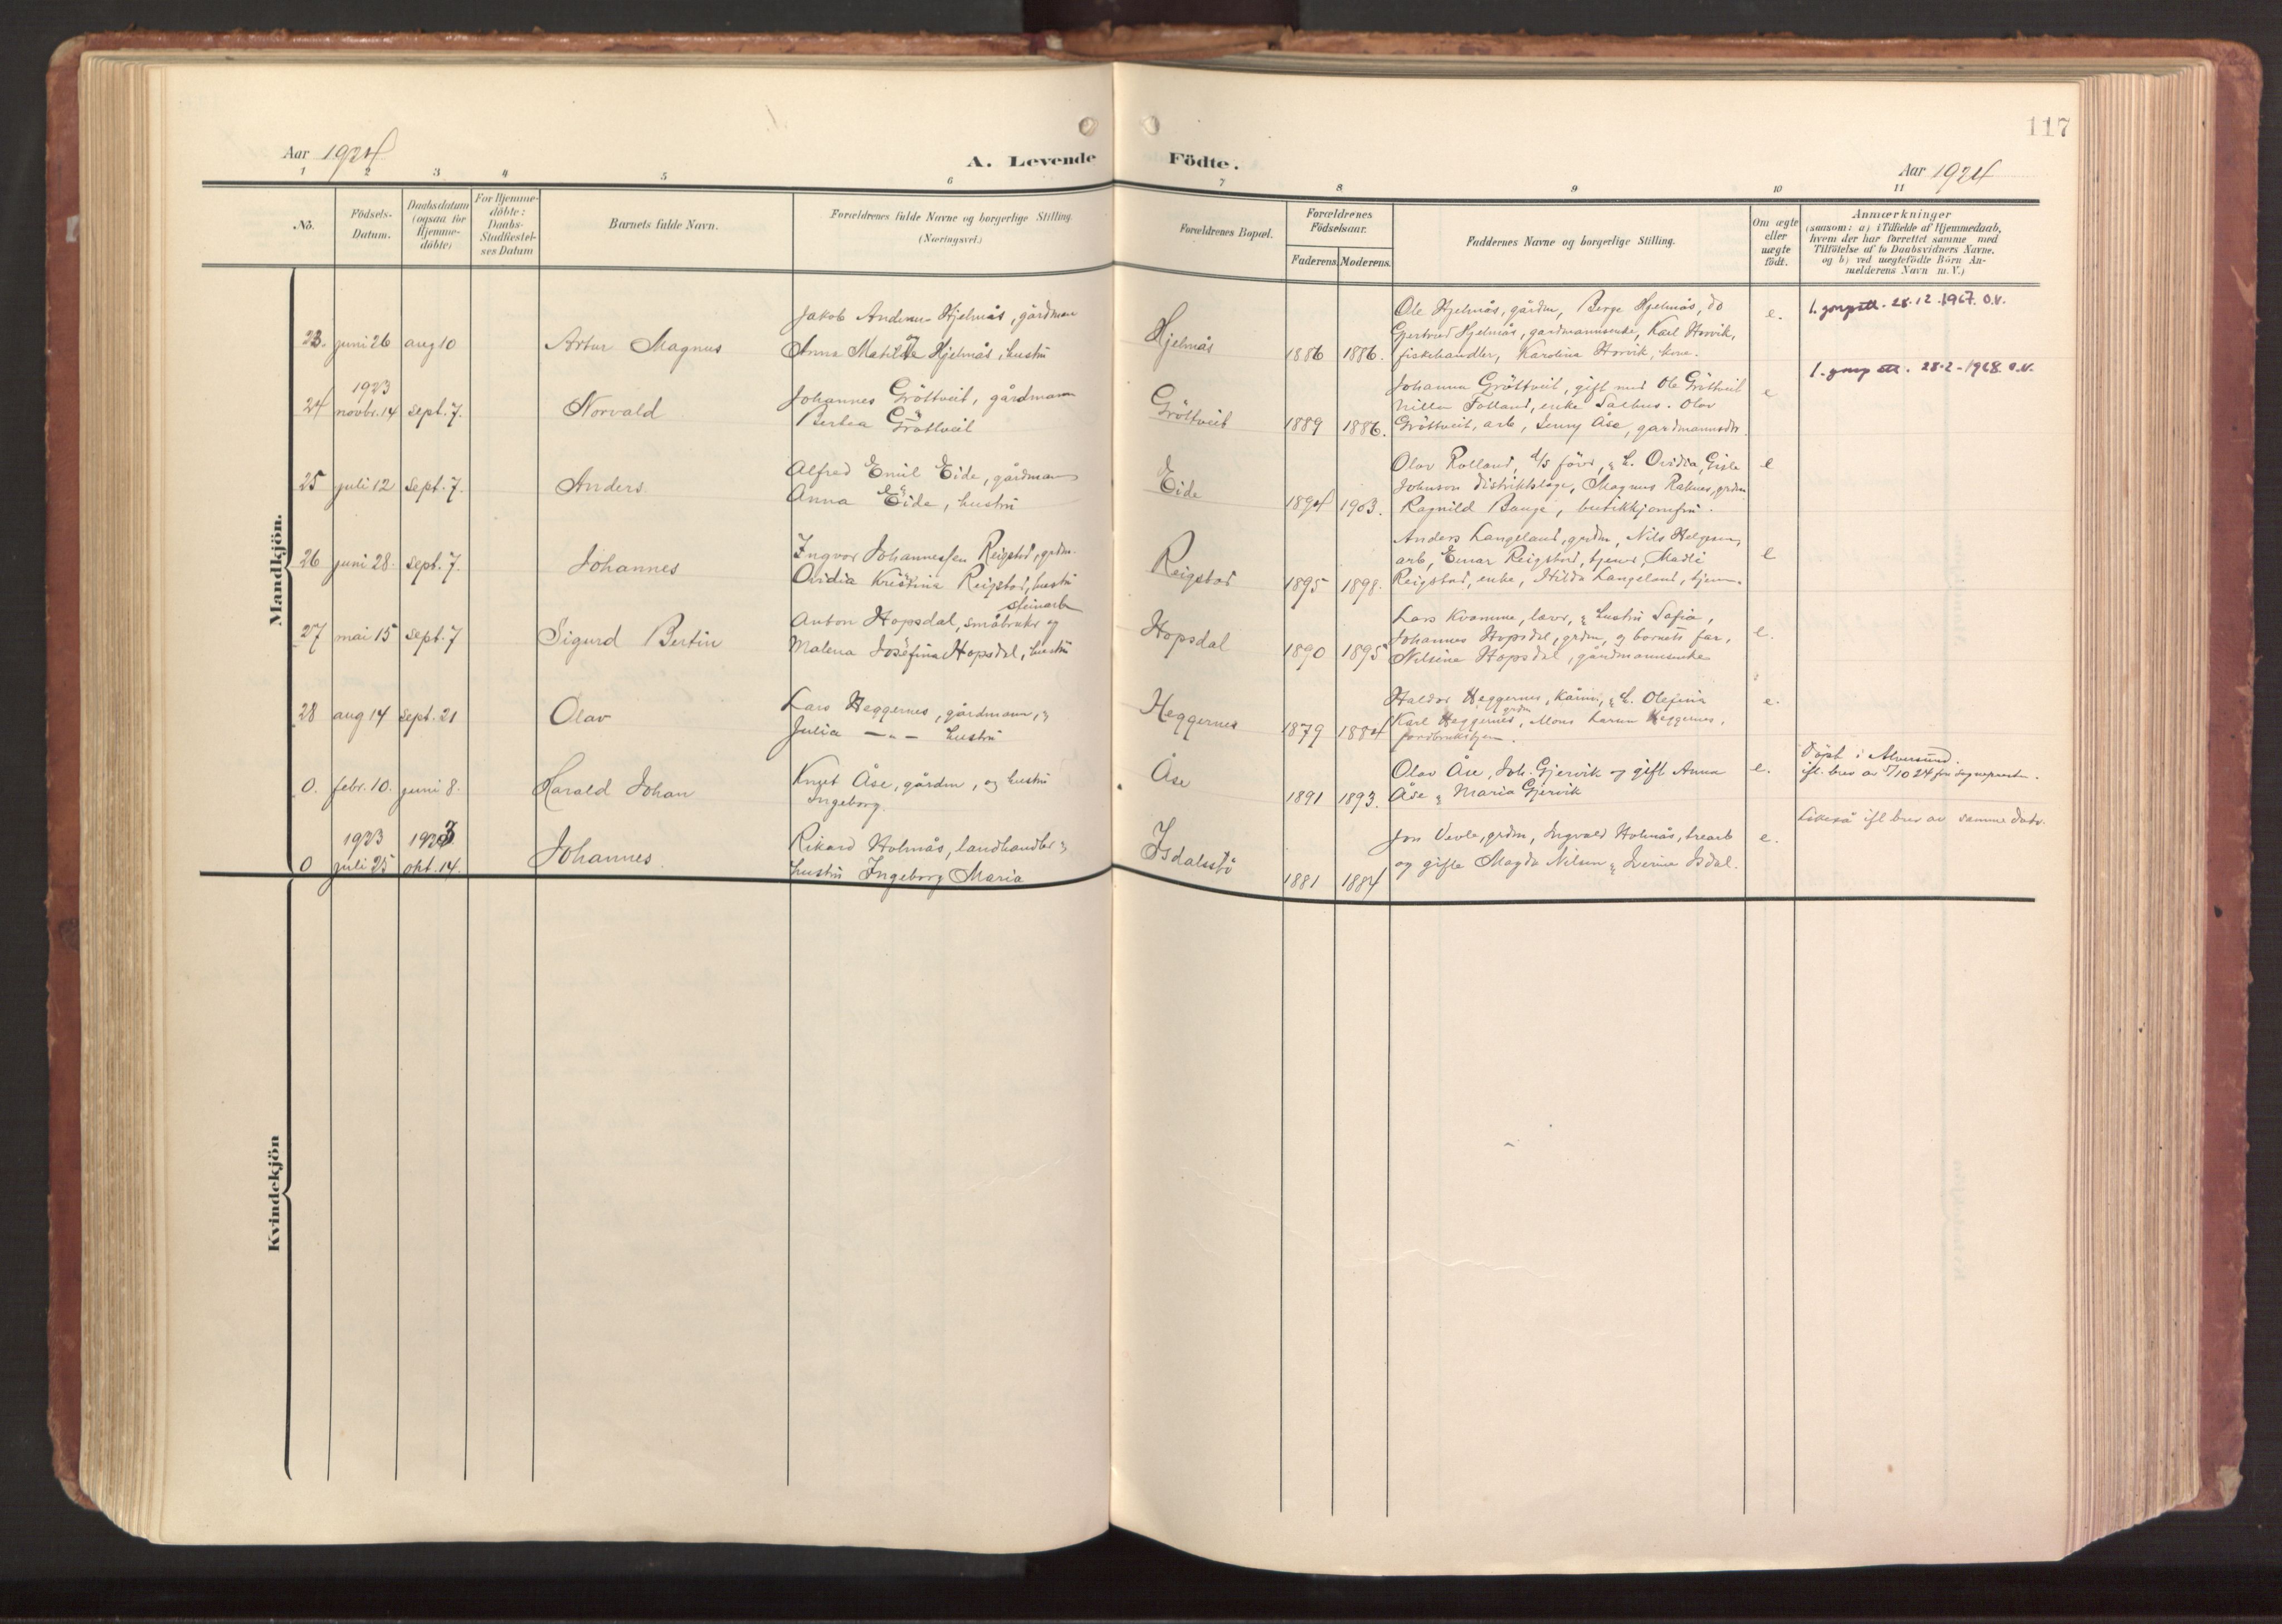 117
Aar 1924
A. Levende Födte.
Aar 1924
1 2 3 4 5 6 7 8 9 10 11
No.
Födsels-
Datum.
Daabsdatum
(ogsaa for
Hjemme-
döbte)
For Hjemme-
döbte:
Daabs-
Stadfæstel-
ses Datum
Barnets fulde Navn.
Forældrenes fulde Navne og borgerlige Stilling.
(Næringsvei.)
Forældrenes Bopæl.
Forældrenes
Födselsaar.
Faderens. Moderens.
Faddernes Navne og borgerlige Stilling.
Om ægte
eller
uægte
födt.
Anmærkninger
(saasom: a) i Tilfælde af Hjemmedaab,
hvem der har forrettet samme med
Tilföielse af to Daabsvidners Navne,
og b) ved uægtefödte Börn An-
melderens Navn m. V.)
Mandkjön.
23. juni 26 aug 10 Artur Magnus
Jakob Hjelmås, gårdman
og
Anna Matilde Hjelmås, hustru
Hjelmås 1886 1886.
Ole Hjelmås, gårdm, Berge Hjelmås, do
Gjertrud Hjelmås, gardmannsenke, Karl Horvik,
fiskehandler, Karolina Horvik, kone.
e. 28.12.1967. O.V.
1923
24 novbr. 14 sept. 7. Norvald
Johannes Gröttveit, gårdmann
Bertea Gröttveit
Gröttveit 1889 1886.
Johanna Gröttveit, gift med Ole Gröttveit
Nilla Folland, enke Salhus. Olav
Gröttveit, arb, Jenny Åse, gardmannsdtr.
e 28.2-1968 O.V.
25 juli 12 sept. 7. Anders
Alfred Emil Eide, gårdman
Anna Eide, hustru
Eide 1894 1903.
Olav Rolland, d/s förer, & h. Ovidia, Gisle
Johnson distriktslæge, Magnus Raknes, grdm
Ragnild Bauge, butikkjomfru.
e
26 juni 28. sept. 7. Johannes
Ingvor Johannessen Reigstad, grdm.
Ovidia Kristina Reigstad, hustru
Reigstad 1895 1898.
Anders Langeland, grdm, Nils Helgesen,
arb, Einar Reigstad, tjener, Madli
Reigstad, enke, Hilda Langeland, hjem.
e
27 mai 15 sept. 7 Sigurd Bertin
steinarb
Anton Hopsdal, småbruker og
Malena Josefina Hopsdal, hustru
Hopsdal 1890 1895
Lars Kvamme, lærer, & hustru Sofia,
Johannes Hopsdal, grdm, og barnets far,
Nilsina Hopsdal, gårdmannsenke
e.
28 aug 14 sept. 21 Olav
Lars Heggernes, gårdmann, &
Julia — " — hustru
Heggernes 1879 1884
Haldor Heggernes, kårm, & h. Olefina
grdm
Karl Heggernes, Mons Larsen Heggernes,
jordbrukstjen.
e.
0. febr. 10. juni 8. Harald Johan
Knut Åse, gårdm, og hustru
Ingeborg.
Åse 1891 1893.
Olav Åse, Joh. Gjervik og gift Anna
Åse & Maria Gjervik
e.
Döpt i Alversund
ifl. brev av 5/10 24 fra sogneprest.
1923 1923
0 juli 25 okt. 14. Johannes.
Rikard Holmås, landhandler &
hustru Ingeborg Maria
Isdalstö 1881 1884
Jon Vevle, grdm, Ingvald Holmås, trearb
og gifte Magda Nilsen & Isdal.
e.
Likeså ifl brev av samme dato.
Kvindekjön